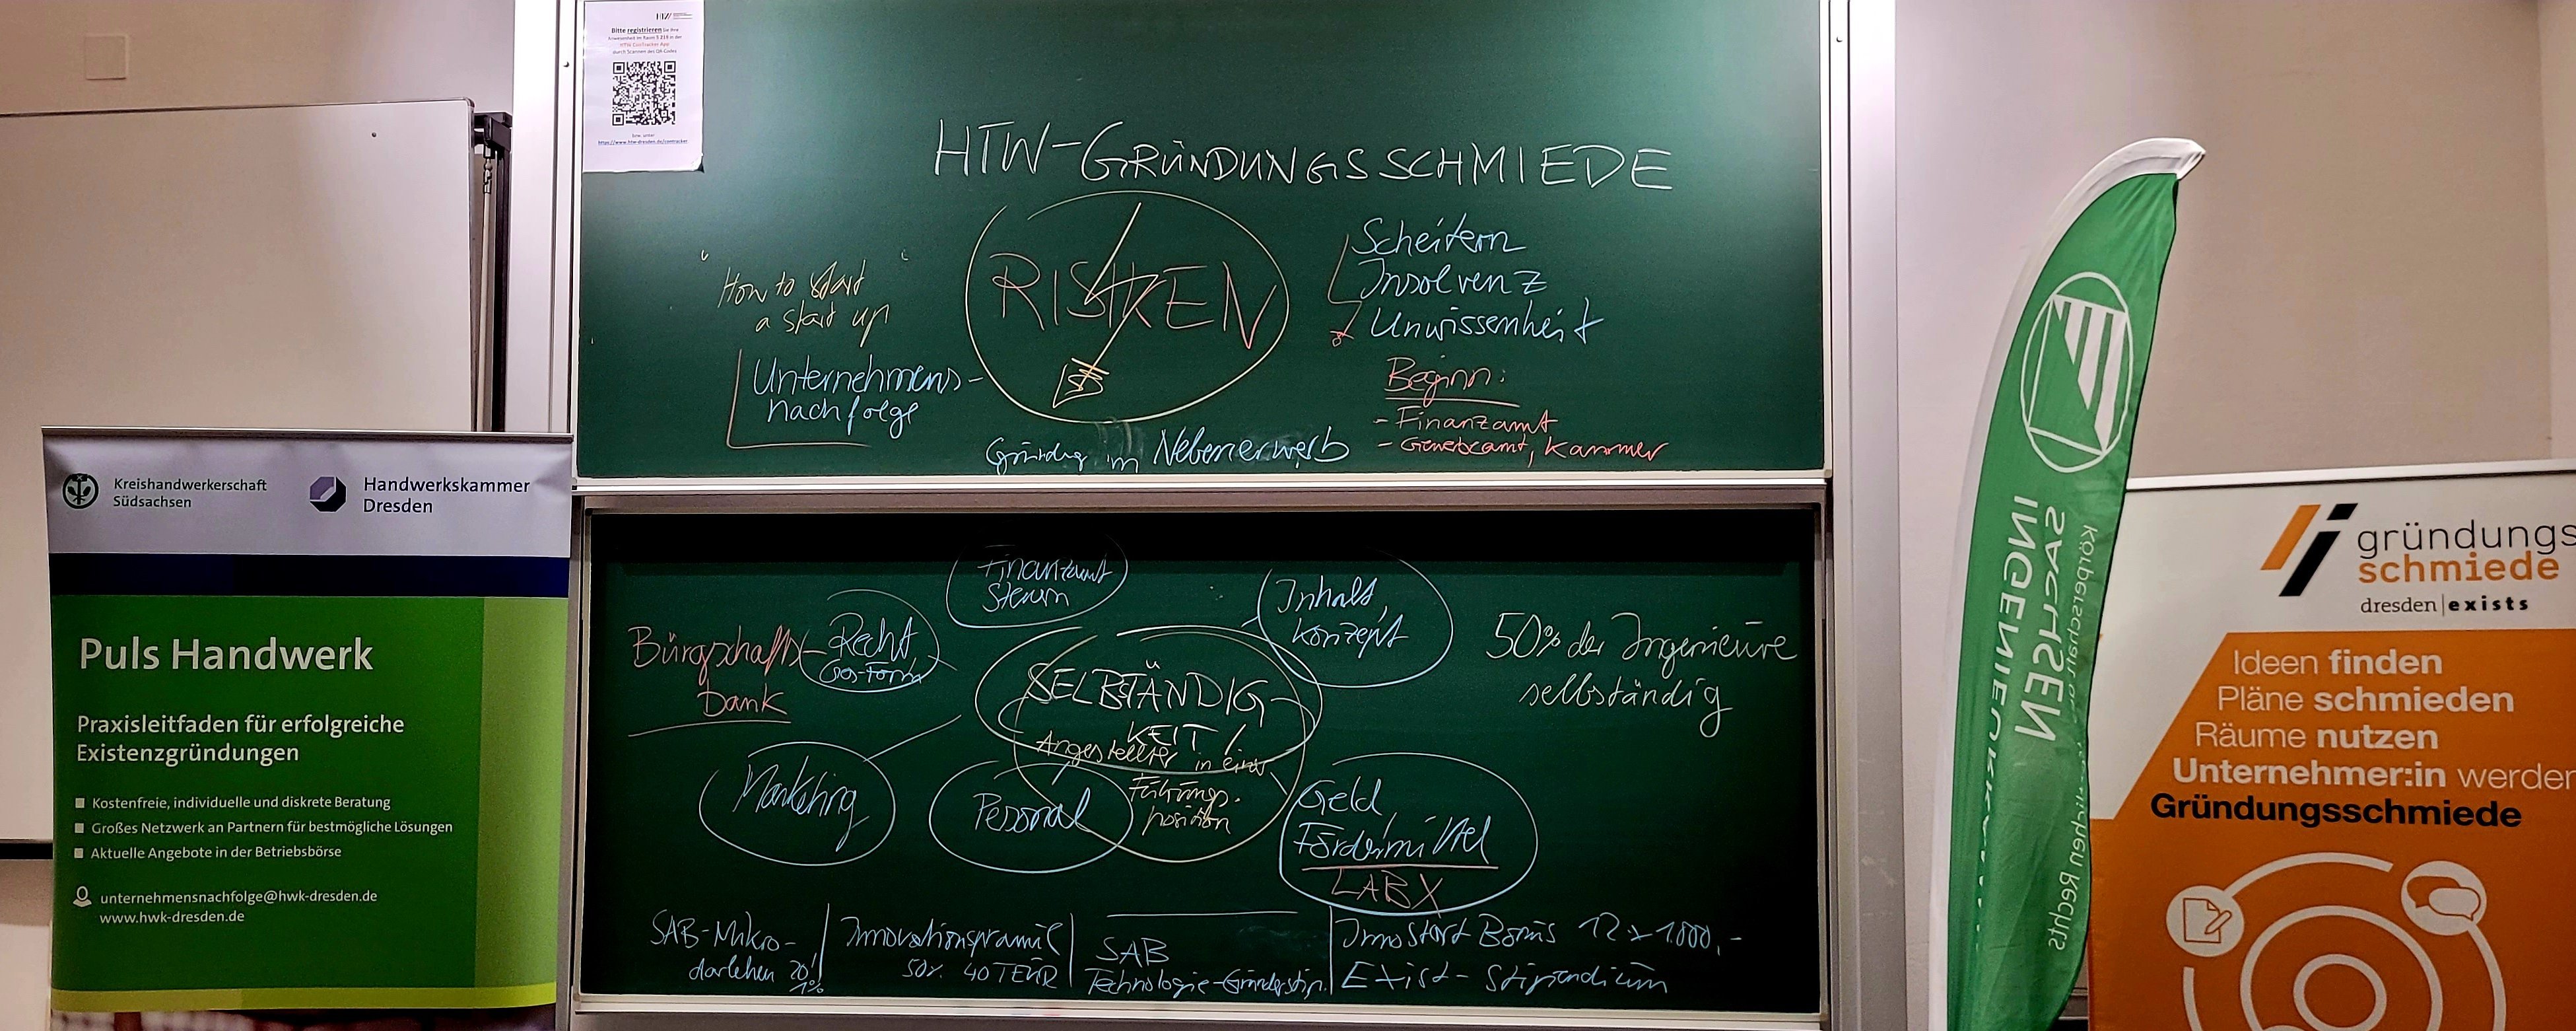 Bitte registrieren Sie Ihre
Anwesenheit im Raum S 218 in der
HTW ConTracker App
durch Scannen des QR-Codes
bzw. unter
https://www.htw-dresden.de/contracker
HTW-GRÜNDUNGSSCHMIEDE
"How to start
a start up
Unternehmens-
nachfolge
RISIKEN
Scheitern
Insolvenz
Unwissenheit
Beginn:
- Finanzamt
- Gewerbeamt, Kammer
Gründung im Nebenerwerb
Finanzamt
Steuern
Recht
Ges-Form
Bürgschafts-
bank
Inhalt,
Konzept
SELBSTÄNDIG-
KEIT /
Angestellter in einer
Führungs-
position
50% der Ingenieure
selbständig
Marketing
Personal
Geld,
Fördermittel
LAB X
SAB-Mikro-
darlehen 20!
1%
Innovationsprämie
50% 40 TEUR
SAB
Technologie-Gründerstip.
InnoStart Bonus 12 x 1.000,-
Exist-Stipendium
Kreishandwerkerschaft
Südsachsen
Handwerkskammer
Dresden
Puls Handwerk
Praxisleitfaden für erfolgreiche
Existenzgründungen
Kostenfreie, individuelle und diskrete Beratung
Großes Netzwerk an Partnern für bestmögliche Lösungen
Aktuelle Angebote in der Betriebsbörse
unternehmensnachfolge@hwk-dresden.de
www.hwk-dresden.de
INGENIEURKAMMER
SACHSEN
Körperschaft des öffentlichen Rechts
gründungs
schmiede
dresden|exists
Ideen finden
Pläne schmieden
Räume nutzen
Unternehmer:in werden
Gründungsschmiede